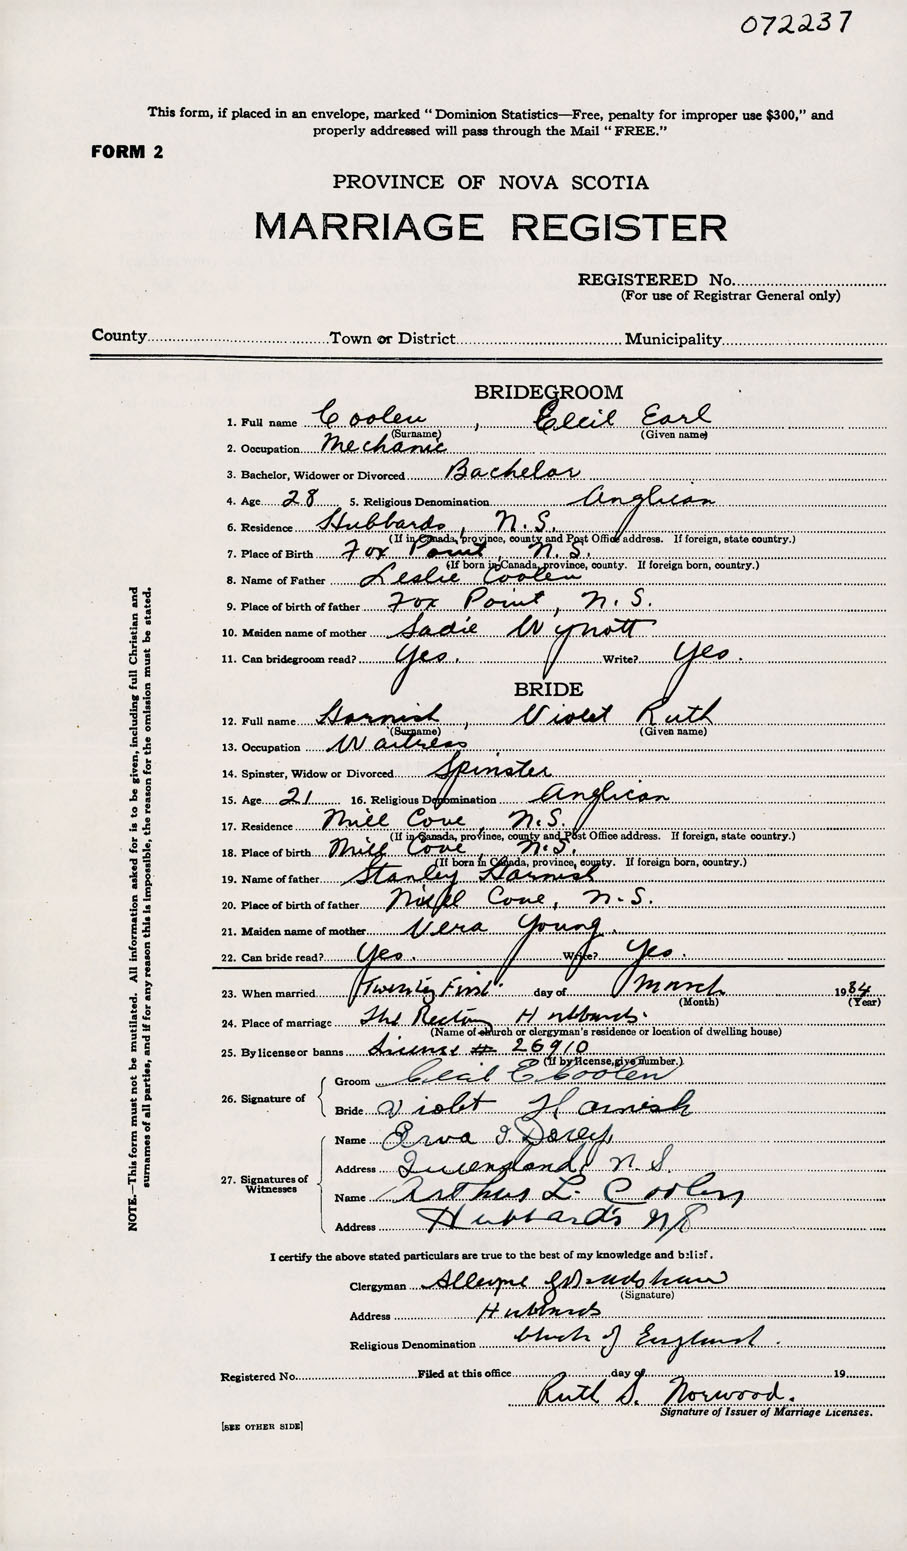 072237
This form, if placed in an envelope, marked "Dominion Statistics—Free, penalty for improper use $300," and
properly addressed will pass through the Mail "FREE."
FORM 2
PROVINCE OF NOVA SCOTIA
MARRIAGE REGISTER
REGISTERED No.
(For use of Registrar General only)
County Town or District Municipality
BRIDEGROOM
1. Full name Coolen, Cecil Earl
(Surname) (Given name)
2. Occupation Mechanic
3. Bachelor, Widower or Divorced Bachelor
4. Age 28 5. Religious Denomination Anglican
6. Residence Hubbards, N.S.
(If in Canada, province, county and Post Office address. If foreign, state country.)
7. Place of Birth Fox Point, N.S.
(If born in Canada, province, county. If foreign born, country.)
8. Name of Father Leslie Coolen
9. Place of birth of father Fox Point, N.S.
10. Maiden name of mother Sadie Wynott
11. Can bridegroom read? Yes. Write? Yes.
BRIDE
12. Full name Harnish, Violet Ruth
(Surname) (Given name)
13. Occupation Waitress
14. Spinster, Widow or Divorced Spinster
15. Age 21 16. Religious Denomination Anglican
17. Residence Mill Cove, N.S.
(If in Canada, province, county and Post Office address. If foreign, state country.)
18. Place of birth Mill Cove, N.S.
(If born in Canada, province, county. If foreign born, country.)
19. Name of father Stanley Harnish
20. Place of birth of father Mill Cove, N.S.
21. Maiden name of mother Vera Young.
22. Can bride read? Yes. Write? Yes.
23. When married Twenty First day of March 19
(Month) (Year)
24. Place of marriage The Rectory Hubbards.
(Name of church or clergyman's residence or location of dwelling house)
25. By license or banns License # 26910
(If by license, give number.)
26. Signature of Groom Cecil E. Coolen
Bride Violet Harnish
27. Signatures of Witnesses Name Dorey
Address Queensland N.S.
Name Arthur L. Coolen
Address Hubbards NS
I certify the above stated particulars are true to the best of my knowledge and belief.
Clergyman
(Signature)
Address Hubbards
Religious Denomination Church of England.
Registered No. Filed at this office day of 19
Ruth S. Norwood.
Signature of Issuer of Marriage Licenses.
[SEE OTHER SIDE]
NOTE.—This form must not be mutilated. All information asked for is to be given, including full Christian and
surnames of all parties, and if for any reason this is impossible, the reason for the omission must be stated.